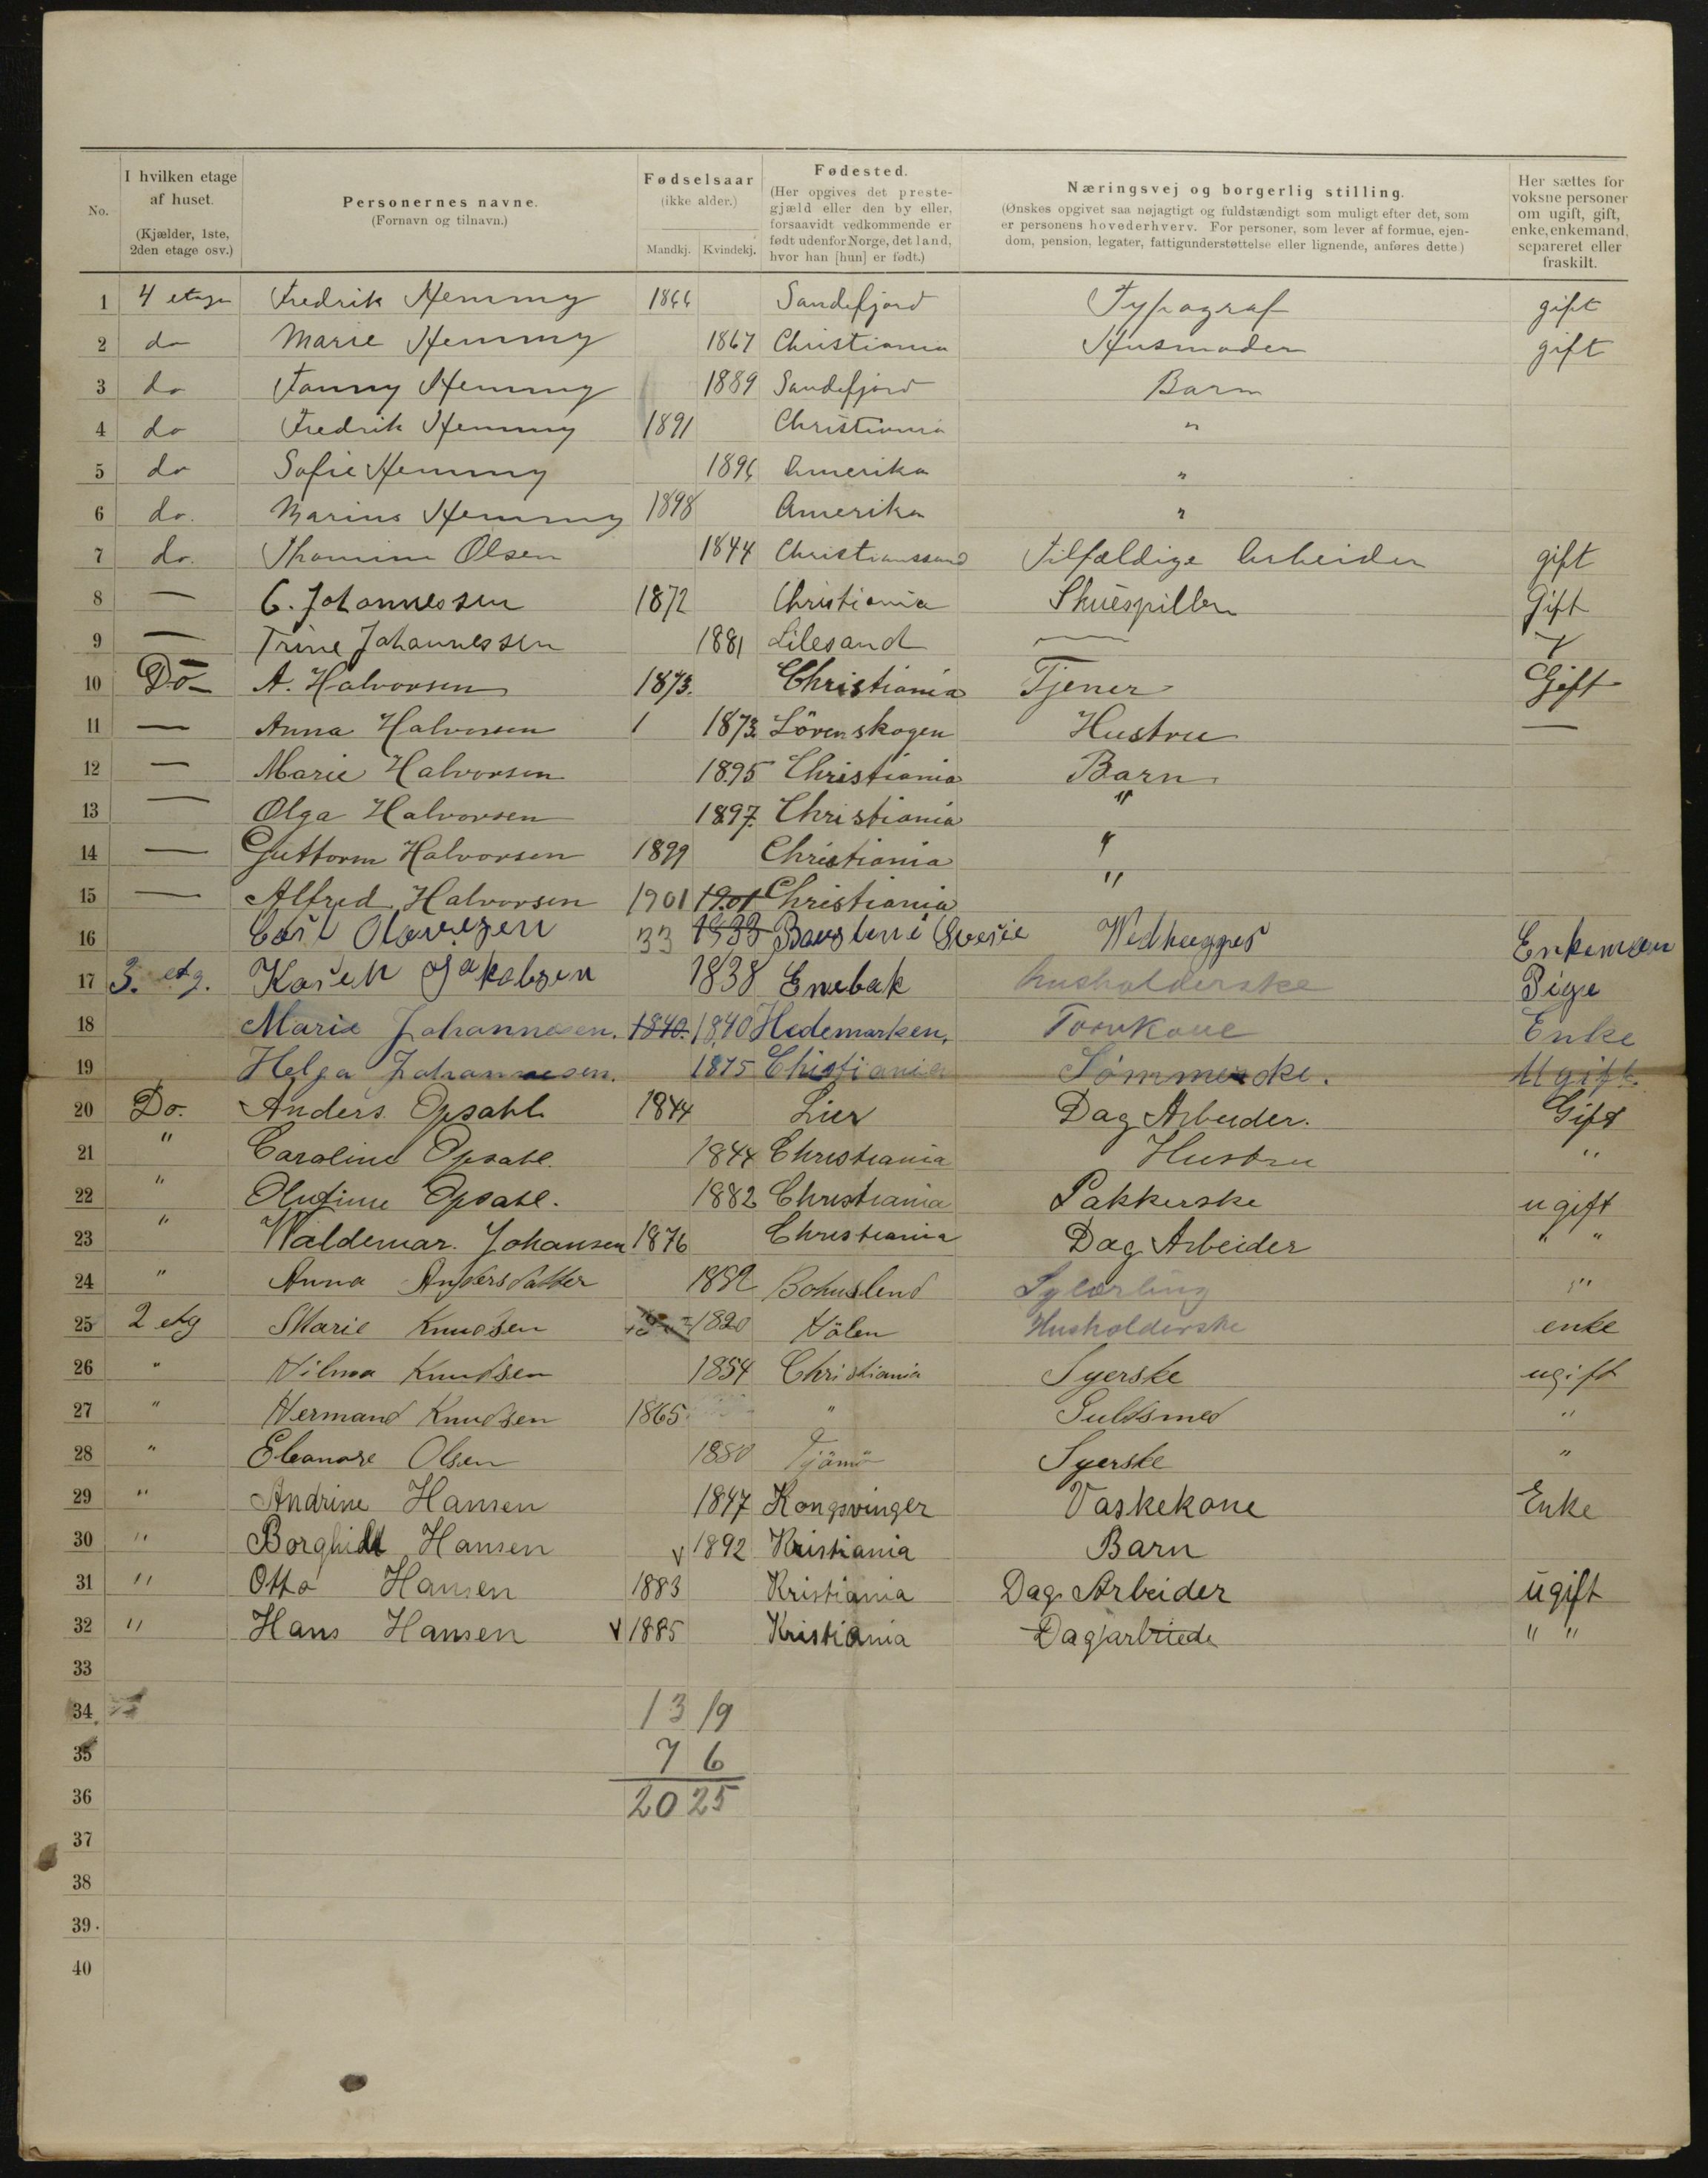 No.
I hvilken etage af huset. (Kjælder, 1ste, 2den etage osv.)
Personernes navne. (Fornavn og tilnavn.)
Fødselsaar (ikke alder.) Mandkj. Kvindekj.
Fødested. (Her opgives det prestegjæld eller den by eller, forsaavidt vedkommende er født udenfor Norge, det land, hvor han [hun] er født.)
Næringsvej og borgerlig stilling. (Ønskes opgivet saa nøjagtigt og fuldstændigt som muligt efter det, som er personens hovederhverv. For personer, som lever af formue, ejendom, pension, legater, fattigunderstøttelse eller lignende, anføres dette)
Her sættes for voksne personer om ugift, gift, enke, enkemand, separeret eller fraskilt.
1 4 etage Fredrik Hemmy 1866 Sandefjord Typograf gift
2 do Marie Hemmy 1867 Christiania Husmoder gift
3 do Fanny Hemmy 1889 Sandefjord Barn
4 do Fredrik Hemmy 1891 Christiania "
5 do Sofie Hemmy 1896 Amerika "
6 do. Marius Hemmy 1898 Amerika "
7 do. Thomine Olsen 1844 Christianssand Tilfældige Arbeider gift
8 — C. Johannessen 1872 Christiania Skuespiller Gift
9 — Trine Johannessen 1881 Lilesand —
10 Do A. Halvorsen 1873. Christiania Tjener Gift
11 — Anna Halvorsen 1 1873. Lörenskogen Hustru —
12 — Marie Halvorsen 1895 Christiania Barn.
13 — Olga Halvorsen 1897. Christiania "
14 — Guttorm Halvorsen 1899 Christiania "
15 — Alfred Halvorsen 1901 1901 Christiania "
16 Carl 33 1833 Wedhugger Enkeman
17 3. etg. Karen Jakobsen 1838 Enebak husholderske Pige
18 Marie Johannesen. 1840. 1840 Hedemarken. Enke
19 Helga Johannesen. 1875 Christiania Sömmerske. Ugift.
20 Do. Anders Opsahl 1844 Lier Dag Arbeider. Gift
21 " Caroline Opsahl. 1844 Christiania Hustru "
22 " Olufine Opsahl. 1882 Christiania Pakkerske ugift
23 " Waldemar. Johansen 1876 Christiania Dag Arbeider " "
24 " Anna Andersdatter 1882 Bohuslend Sylærling "
25 2 etg Marie Knudsen 1820 Hölen Husholderske enke
26 " Hilma Knudsen 1854 Christiania Syerske ugift
27 " Hermand Knudsen 1865 " Guldsmed "
28 " Eleonore Olsen 1880 Tjömö Syerske "
29 " Andrine Hansen 1847 Kongsvinger Vaskekone Enke
30 " Borghild Hansen v 1892 Kristiania Barn
31 " Otto Hansen 1883 Kristiania Dag Arbeider ugift
32 " Hans Hansen v 1885 Kristiania " "
33
34 13 19
35 7 6
36 20 25
37
38
39
40